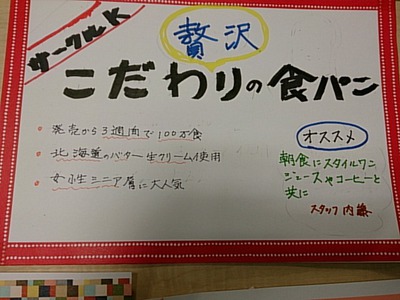 サークルK
贅沢
こだわりの食パン
発売から3週間で100万食
北海道のバター生クリーム使用
女性シニア層に大人気
オススメ
朝食にスタイルワン
ジュースやコーヒーと
共に
スタッフ 内藤